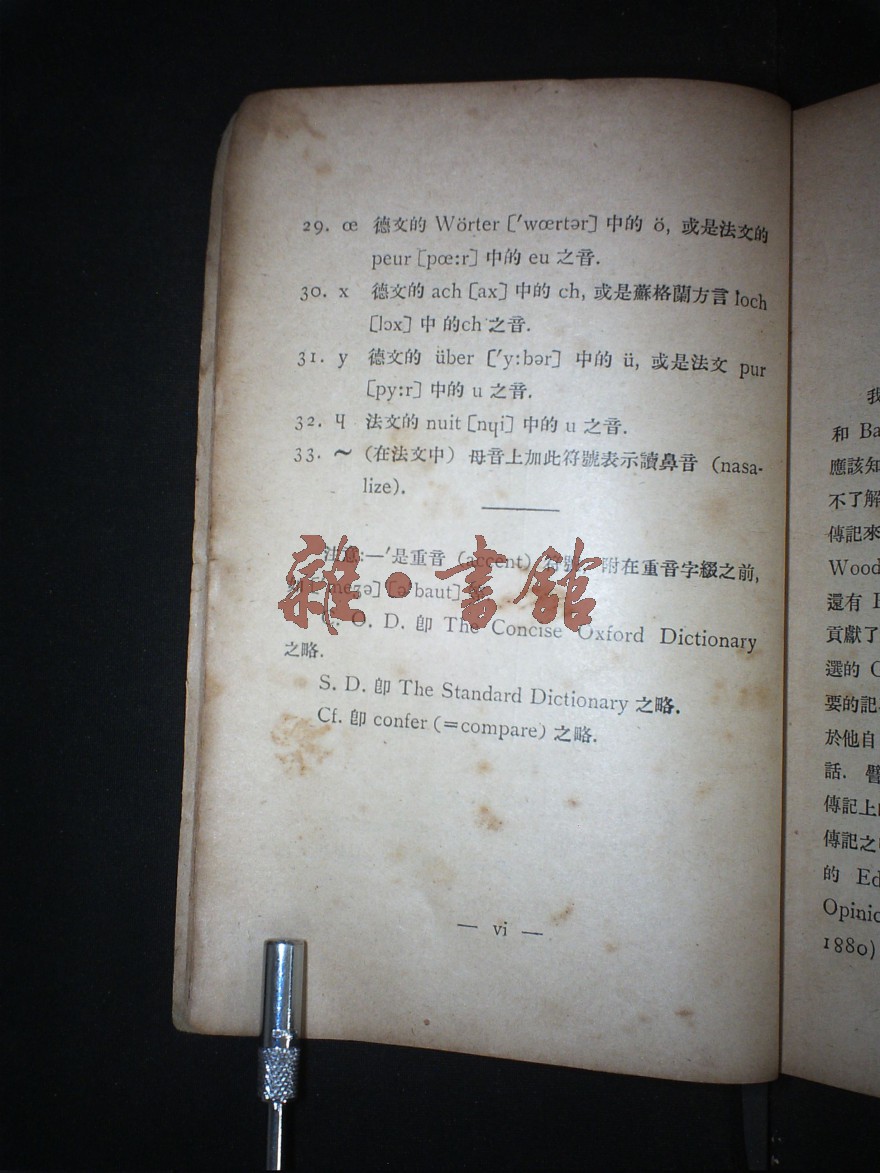 29. œ 德文的 Wörter ['wœrtər] 中的 ö, 或是法文的
peur [pœ:r] 中的 eu 之音.
30. x 德文的 ach [ax] 中的 ch, 或是蘇格蘭方言 loch
[lɔx] 中 的ch 之音.
31. y 德文的 über ['y:bər] 中的 ü, 或是法文 pur
[py:r] 中的 u 之音.
32. ɥ 法文的 nuit [nɥi] 中的 u 之音.
33. ～ (在法文中) 母音上加此符號表示讀鼻音 (nasa-
lize).
注意:—'是重音 (accent) 符號, 附在重音字綴之前,
[ə'baut]
O. D. 卽 The Concise Oxford Dictionary
之略.
S. D. 卽 The Standard Dictionary 之略.
Cf. 卽 confer (=compare) 之略.
— vi —
雜·書館
我
和 Ba
應該知
不了解
傳記來
Wood
還有
貢獻了
選的 C
要的記
於他自
話. 譬
傳記上
傳記之
的 Ed
Opinio
1880)